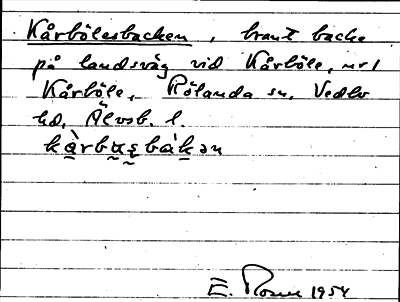 Kårbölesbacken, brant backe
på landsväg vid Kårböle, nr 1
Kårböle, Rölanda sn, Vedbo
hd, Älvsb. l.
kàrbu̠s̠bàkən
E. 1954